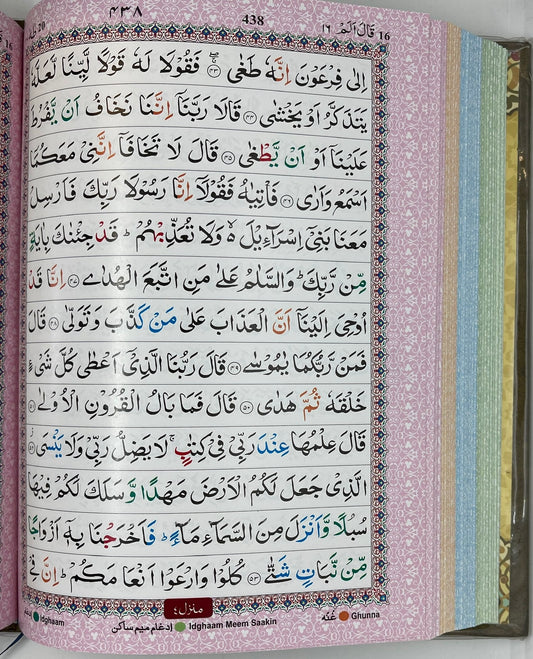 ۴۳۸
438
قَالَ اَلَمْ ١٦
16
اِلٰى فِرْعَوْنَ اِنَّهٗ طَغٰى ۚۖ ﴿۴۳﴾ فَقُوْلَا لَهٗ قَوْلًا لَّيِّنًا لَّعَلَّهٗ
يَتَذَكَّرُ اَوْ يَخْشٰى ﴿۴۴﴾ قَالَا رَبَّنَاۤ اِنَّنَا نَخَافُ اَنْ يَّفْرُطَ
عَلَيْنَاۤ اَوْ اَنْ يَّطْغٰى ﴿۴۵﴾ قَالَ لَا تَخَافَاۤ اِنَّنِيْ مَعَكُمَاۤ
اَسْمَعُ وَاَرٰى ﴿۴۶﴾ فَاْتِيٰهُ فَقُوْلَاۤ اِنَّا رَسُوْلَا رَبِّكَ فَاَرْسِلْ
مَعَنَا بَنِيْۤ اِسْرَآءِيْلَ ۙ وَلَا تُعَذِّبْهُمْ ؕ قَدْ جِئْنٰكَ بِاٰيَةٍ
مِّنْ رَّبِّكَ ؕ وَالسَّلٰمُ عَلٰى مَنِ اتَّبَعَ الْهُدٰى ﴿۴۷﴾ اِنَّا قَدْ
اُوْحِيَ اِلَيْنَاۤ اَنَّ الْعَذَابَ عَلٰى مَنْ كَذَّبَ وَتَوَلّٰى ﴿۴۸﴾ قَالَ
فَمَنْ رَّبُّكُمَا يٰمُوْسٰى ﴿۴۹﴾ قَالَ رَبُّنَا الَّذِيْۤ اَعْطٰى كُلَّ شَيْءٍ
خَلْقَهٗ ثُمَّ هَدٰى ﴿۵۰﴾ قَالَ فَمَا بَالُ الْقُرُوْنِ الْاُوْلٰى ﴿۵۱﴾
قَالَ عِلْمُهَا عِنْدَ رَبِّيْ فِيْ كِتٰبٍ ۚ لَا يَضِلُّ رَبِّيْ وَلَا يَنْسَى ﴿۵۲﴾
الَّذِيْ جَعَلَ لَكُمُ الْاَرْضَ مَهْدًا وَّسَلَكَ لَكُمْ فِيْهَا
سُبُلًا وَّاَنْزَلَ مِنَ السَّمَآءِ مَآءً ؕ فَاَخْرَجْنَا بِهٖۤ اَزْوَاجًا
مِّنْ نَّبَاتٍ شَتّٰى ﴿۵۳﴾ كُلُوْا وَارْعَوْا اَنْعَامَكُمْ ؕ اِنَّ فِيْ
منزل ۴
Idghaam
ادغام میم ساکن Idghaam Meem Saakin
غُنّه Ghunna